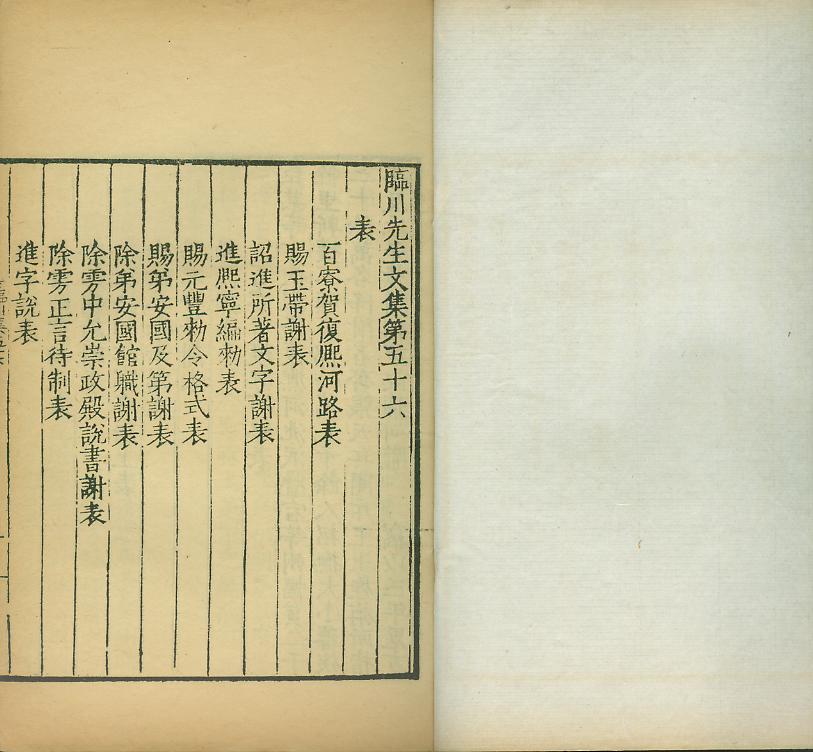 臨川先生文集第五十六
表
百寮賀復熈河路表
賜玉帶謝表
詔進所著文字謝表
進熈寧編勑表
賜元豐勑令格式表
賜弟安國及第謝表
除弟安國館職謝表
除雱中允崇政殿說書謝表
除雱正言待制表
進字說表